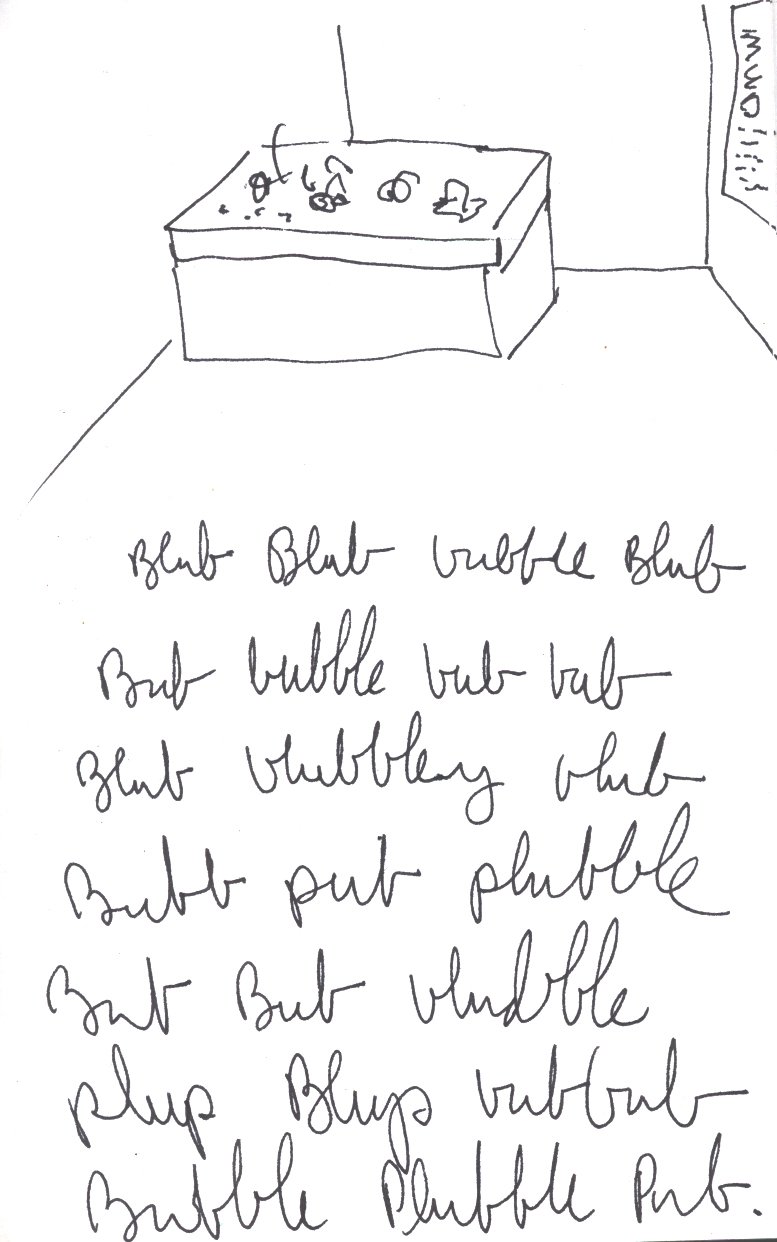 Blub Blub bubble Blub
Bub bubble bub bub
Blub blubbley blub
Bubb pub plubble
Bub Bub bludbble
plup Blup bubbub
Bubble Plubble Pub.